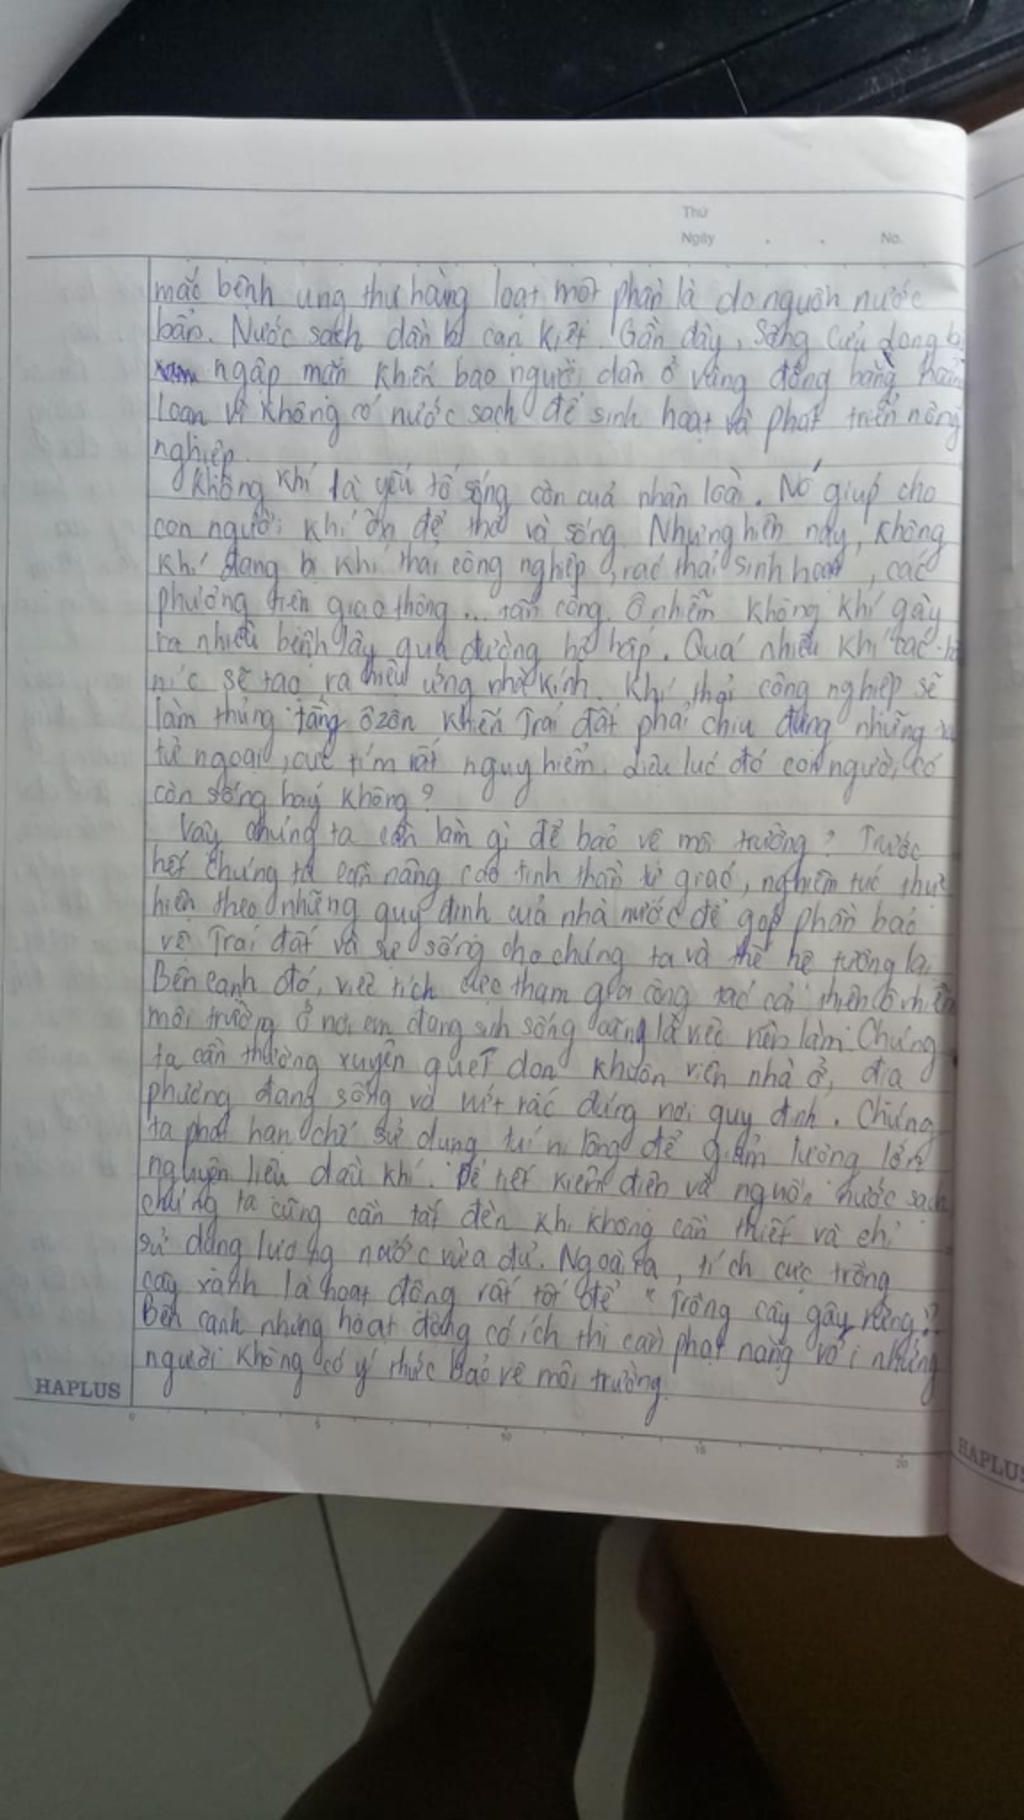 Thứ
Ngày . . No.
mắc bệnh ung thư hàng loạt một phần là do nguồn nước
bẩn. Nước sạch dần bị cạn kiệt. Gần đây, Sông Cửu Long bị
ngập mặn khiến bao người dân ở vùng đồng bằng hoảng
loạn vì không có nước sạch để sinh hoạt và phát triển nông
nghiệp.
Không khí là yếu tố sống còn của nhân loài. Nó giúp cho
con người khí ôn để thở và sống. Nhưng hiện nay, không
khí đang bị khí thải công nghiệp, rác thải sinh hoạt, các
phương tiện giao thông... tấn công. Ô nhiễm không khí gây
ra nhiều bệnh lây qua đường hô hấp. Quá nhiều khí các-bô
níc sẽ tạo ra hiệu ứng nhà kính. Khí thải công nghiệp sẽ
làm thủng tầng ôzôn khiến Trái đất phải chịu đựng những
tử ngoại, cực tím rất nguy hiểm. Liệu lúc đó con người có
còn sống hay không?
Vậy chúng ta cần làm gì để bảo vệ môi trường? Trước
hết chúng ta cần nâng cao tinh thần tự giác, nghiêm túc thực
hiện theo những quy định của nhà nước để góp phần bảo
vệ Trái đất và sự sống cho chúng ta và thế hệ tương lai
Bên cạnh đó, việc tích cực tham gia công tác cải thiện ô nhiễm
môi trường ở nơi em đang sinh sống cũng là việc nên làm. Chúng
ta cần thường xuyên quét dọn khuôn viên nhà ở, địa
phương đang sống và vứt rác đúng nơi quy định. Chúng
ta phải hạn chế sử dụng túi ni lông để giảm lượng lớn
nguyên liệu dầu khí. Để tiết kiệm điện và nguồn nước sạch
chúng ta cũng cần tắt đèn khi không cần thiết và chỉ
sử dụng lượng nước vừa đủ. Ngoài ra, tích cực trồng
cây xanh là hoạt động rất tốt để "Trồng cây gây rừng".
Bên cạnh những hoạt động có ích thì cần phạt nặng với những
người không có ý thức bảo vệ môi trường.
HAPLUS
0 5 10 15 20
HAPLUS